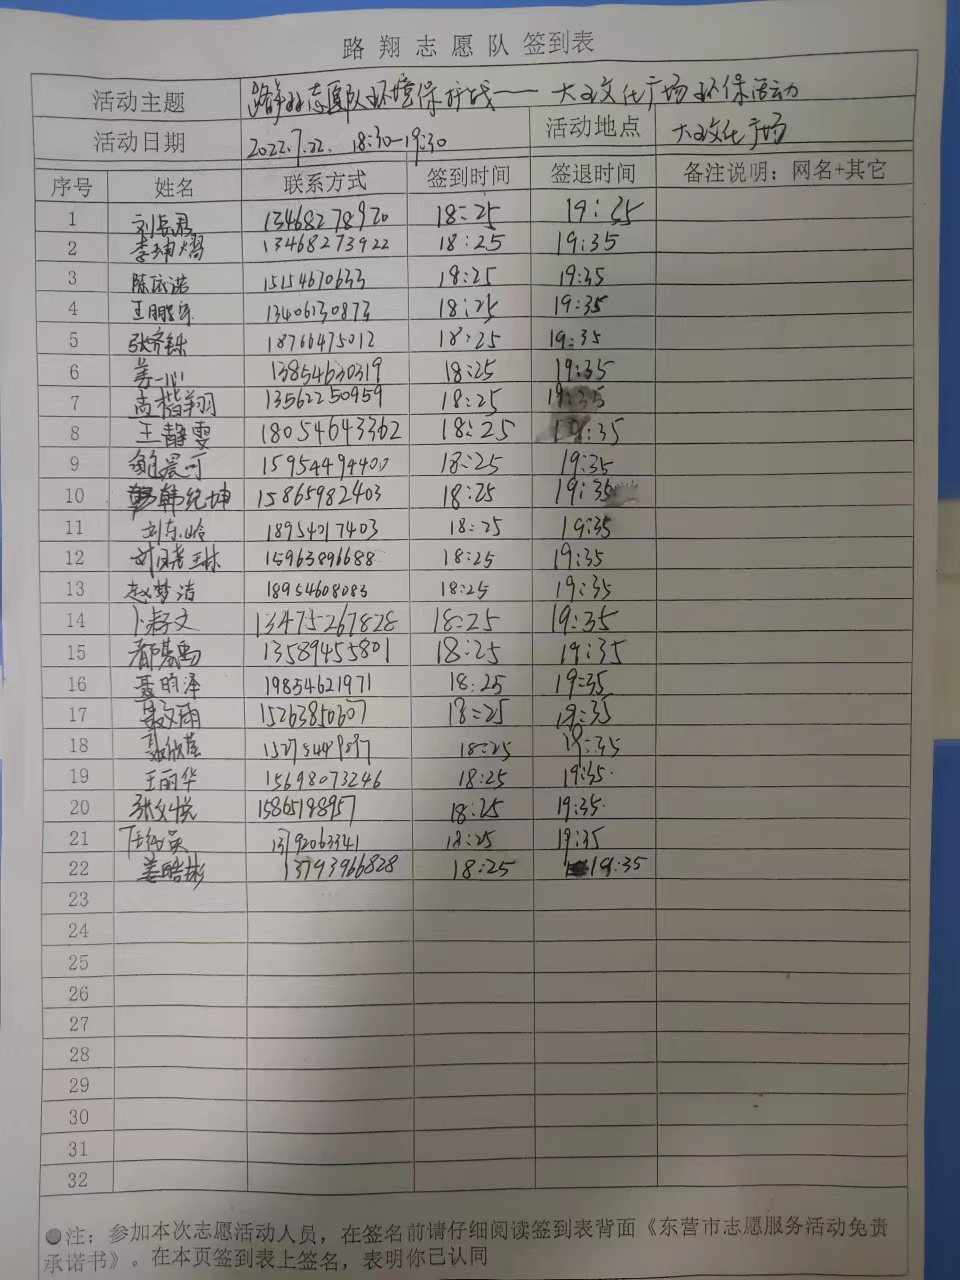 路翔志愿队签到表
活动主题 路翔志愿队环境保护战——大王文化广场环保活动
活动日期 2022.7.22. 18:30-19:30 活动地点 大王文化广场
序号 姓名 联系方式 签到时间 签退时间 备注说明：网名+其它
1 13468278920 18:25 19:35
2 李坤熠 13468273922 18:25 19:35
3 陈依诺 15154670633 18:25 19:35
4 王鹏宇 13406130873 18:25 19:35
5 张齐铄 18766475012 18:25 19:35
6 姜一心 13854630319 18:25 19:35
7 高楷翔 13562250959 18:25 19:35
8 王静雯 18054643362 18:25 19:35
9 鲍晨可 15954494400 18:25 19:35
10 韩纪坤 15865982403 18:25 19:35
11 刘东岭 18954017403 18:25 19:35
12 15963896688 18:25 19:35
13 赵梦洁 18954608083 18:25 19:35
14 13475267828 18:25 19:35
15 13589455801 18:25 19:35
16 聂昀泽 19854621971 18:25 19:35
17 聂文雨 15263850607 18:25 19:35
18 18:25 19:35
19 王丽华 15698073246 18:25 19:35
20 张文悦 15865198957 18:25 19:35
21 18:25 19:35
22 姜皓彬 13793966828 18:25 19:35
23
24
25
26
27
28
29
30
31
32
●注：参加本次志愿活动人员，在签名前请仔细阅读签到表背面《东营市志愿服务活动免责
承诺书》。在本页签到表上签名，表明你已认同